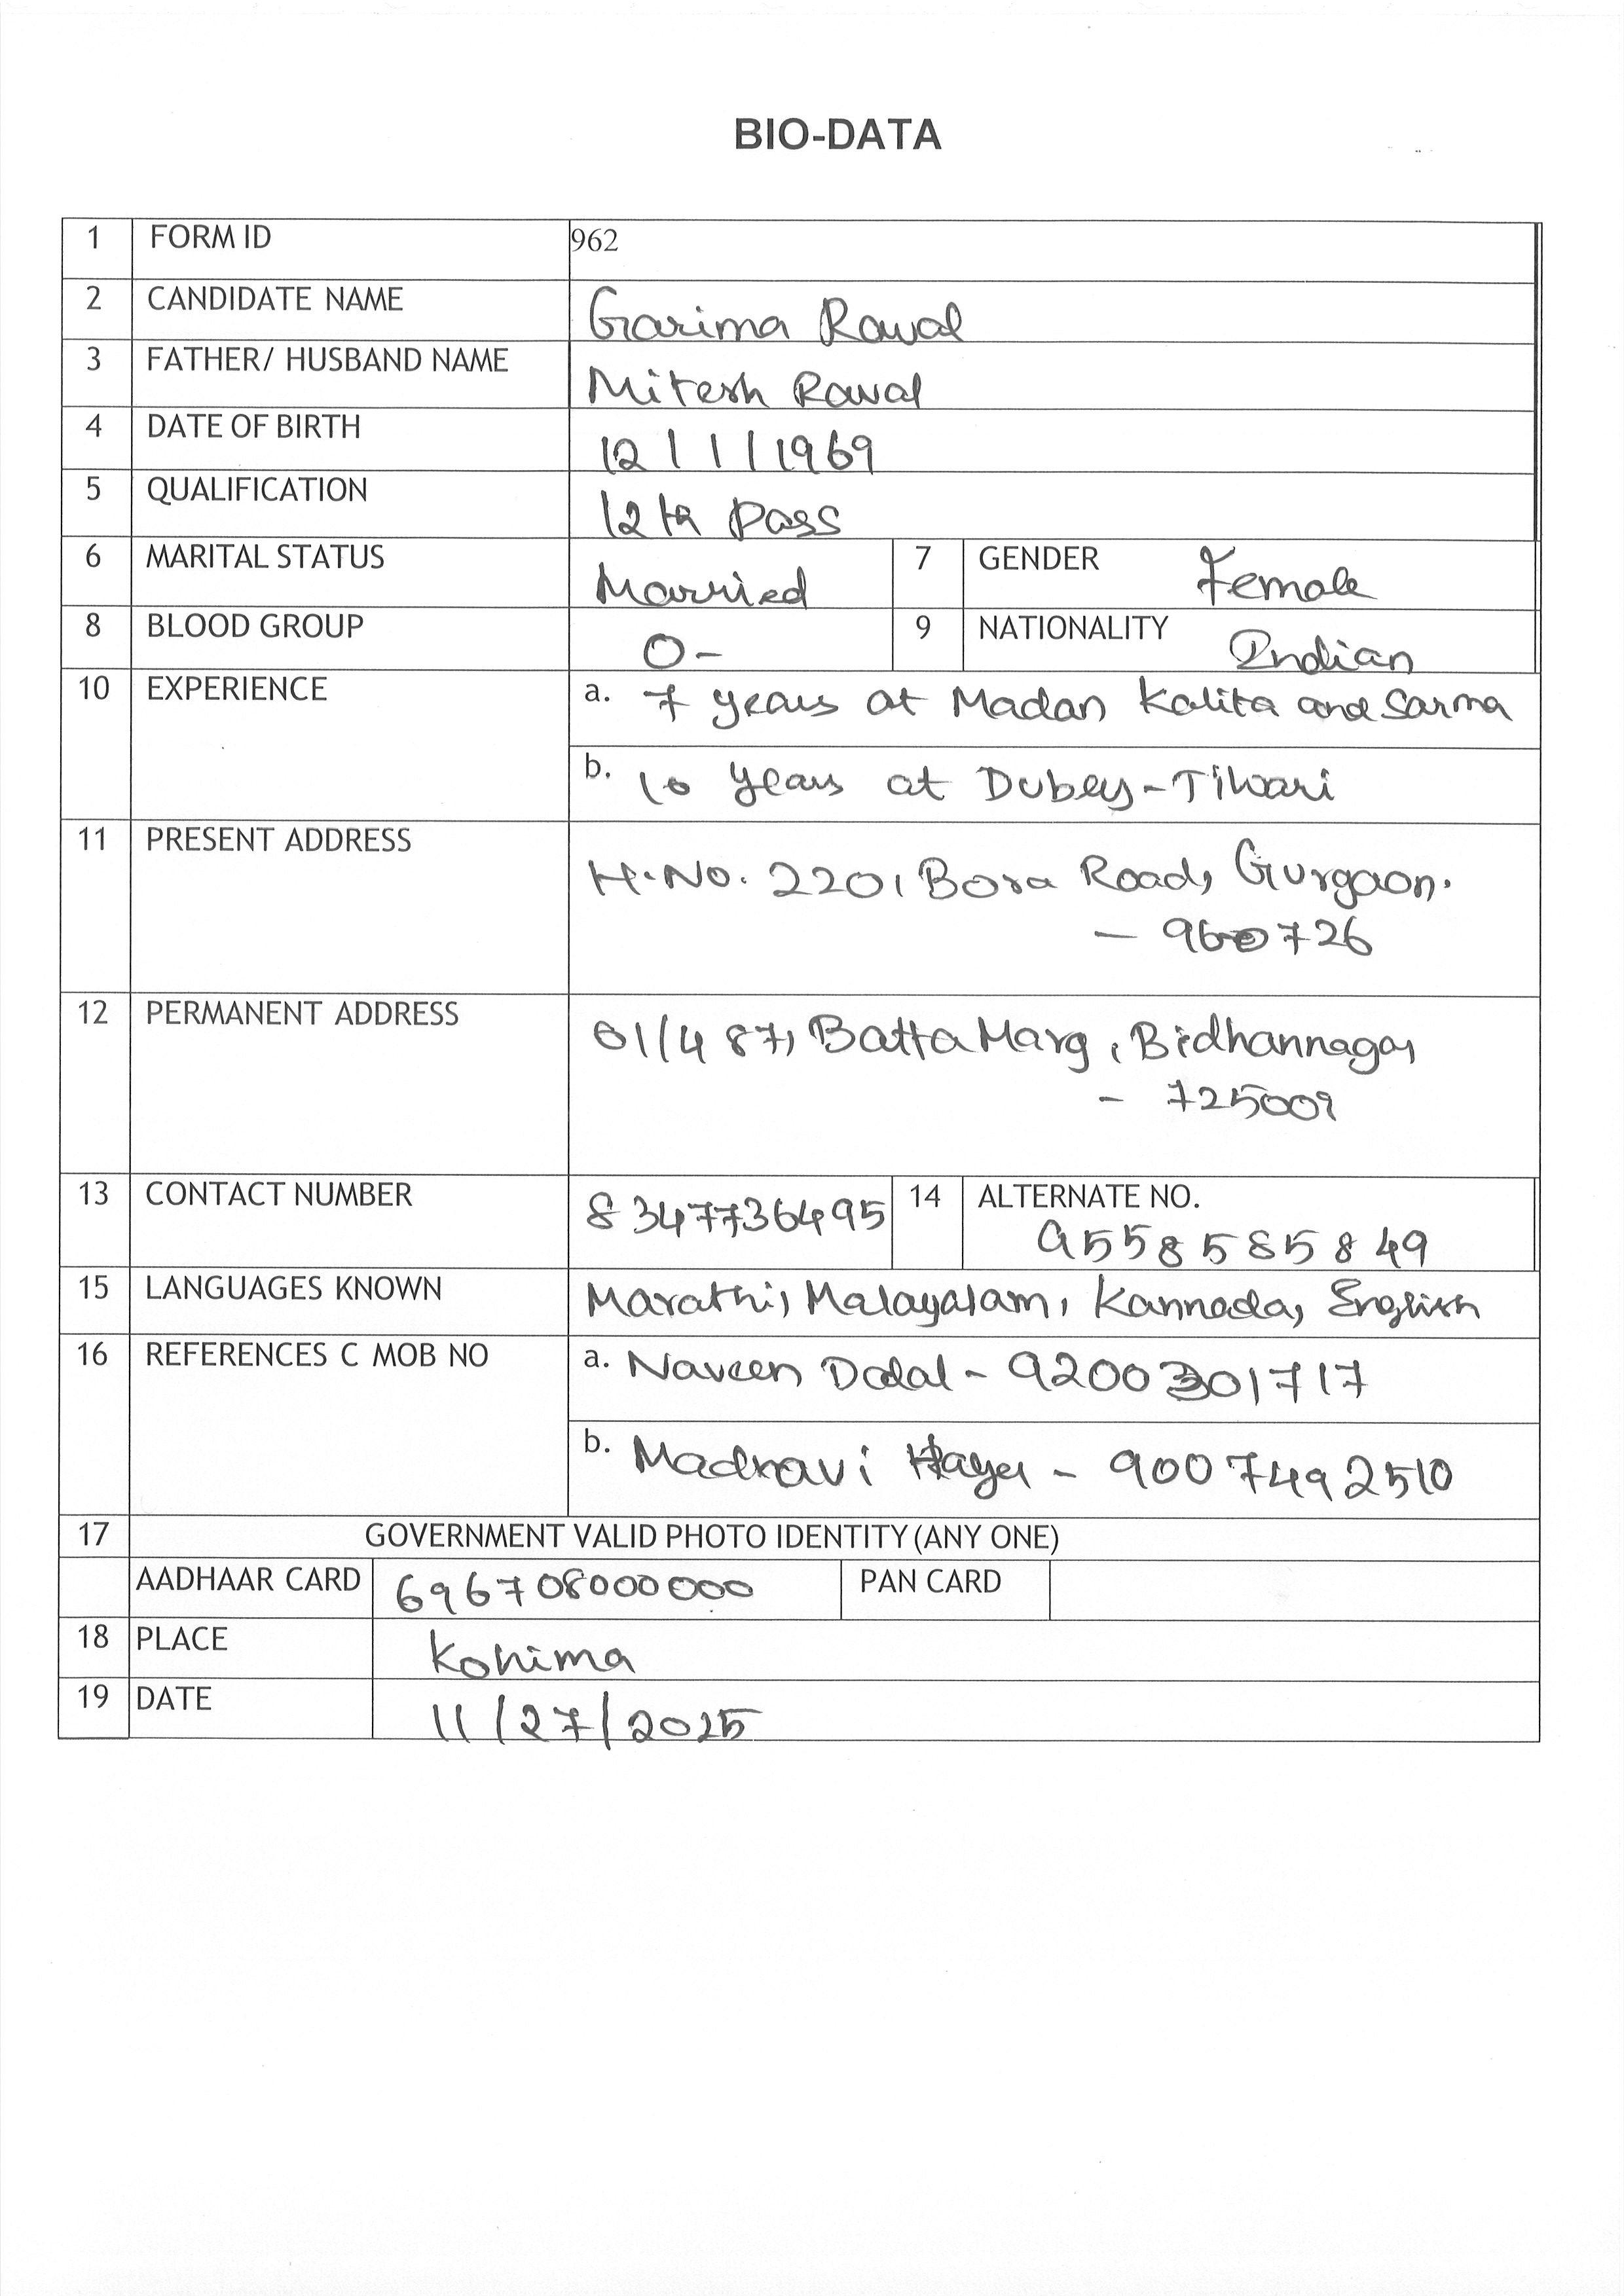 BIO-DATA
1 FORM ID 962
2 CANDIDATE NAME Garima Rawal
3 FATHER/ HUSBAND NAME Mitesh Rawal
4 DATE OF BIRTH 12/1/1969
5 QUALIFICATION 12th pass
6 MARITAL STATUS Married 7 GENDER Female
8 BLOOD GROUP O- 9 NATIONALITY Indian
10 EXPERIENCE a. 7 years at Madan Kalita and Sarma
b. 10 years at Dubey-Tiwari
11 PRESENT ADDRESS H.No. 220, Bora Road, Gurgaon.
- 960726
12 PERMANENT ADDRESS 61/487, Batta Marg, Bidhannagar
- 725009
13 CONTACT NUMBER 8347736495 14 ALTERNATE NO.
9558585849
15 LANGUAGES KNOWN Marathi, Malayalam, Kannada, English
16 REFERENCES C MOB NO a. Naveen Dalal - 9200301717
b. Madhavi Hayer - 9007492510
17 GOVERNMENT VALID PHOTO IDENTITY (ANY ONE)
AADHAAR CARD 696708000000 PAN CARD
18 PLACE Kohima
19 DATE 11/27/2025